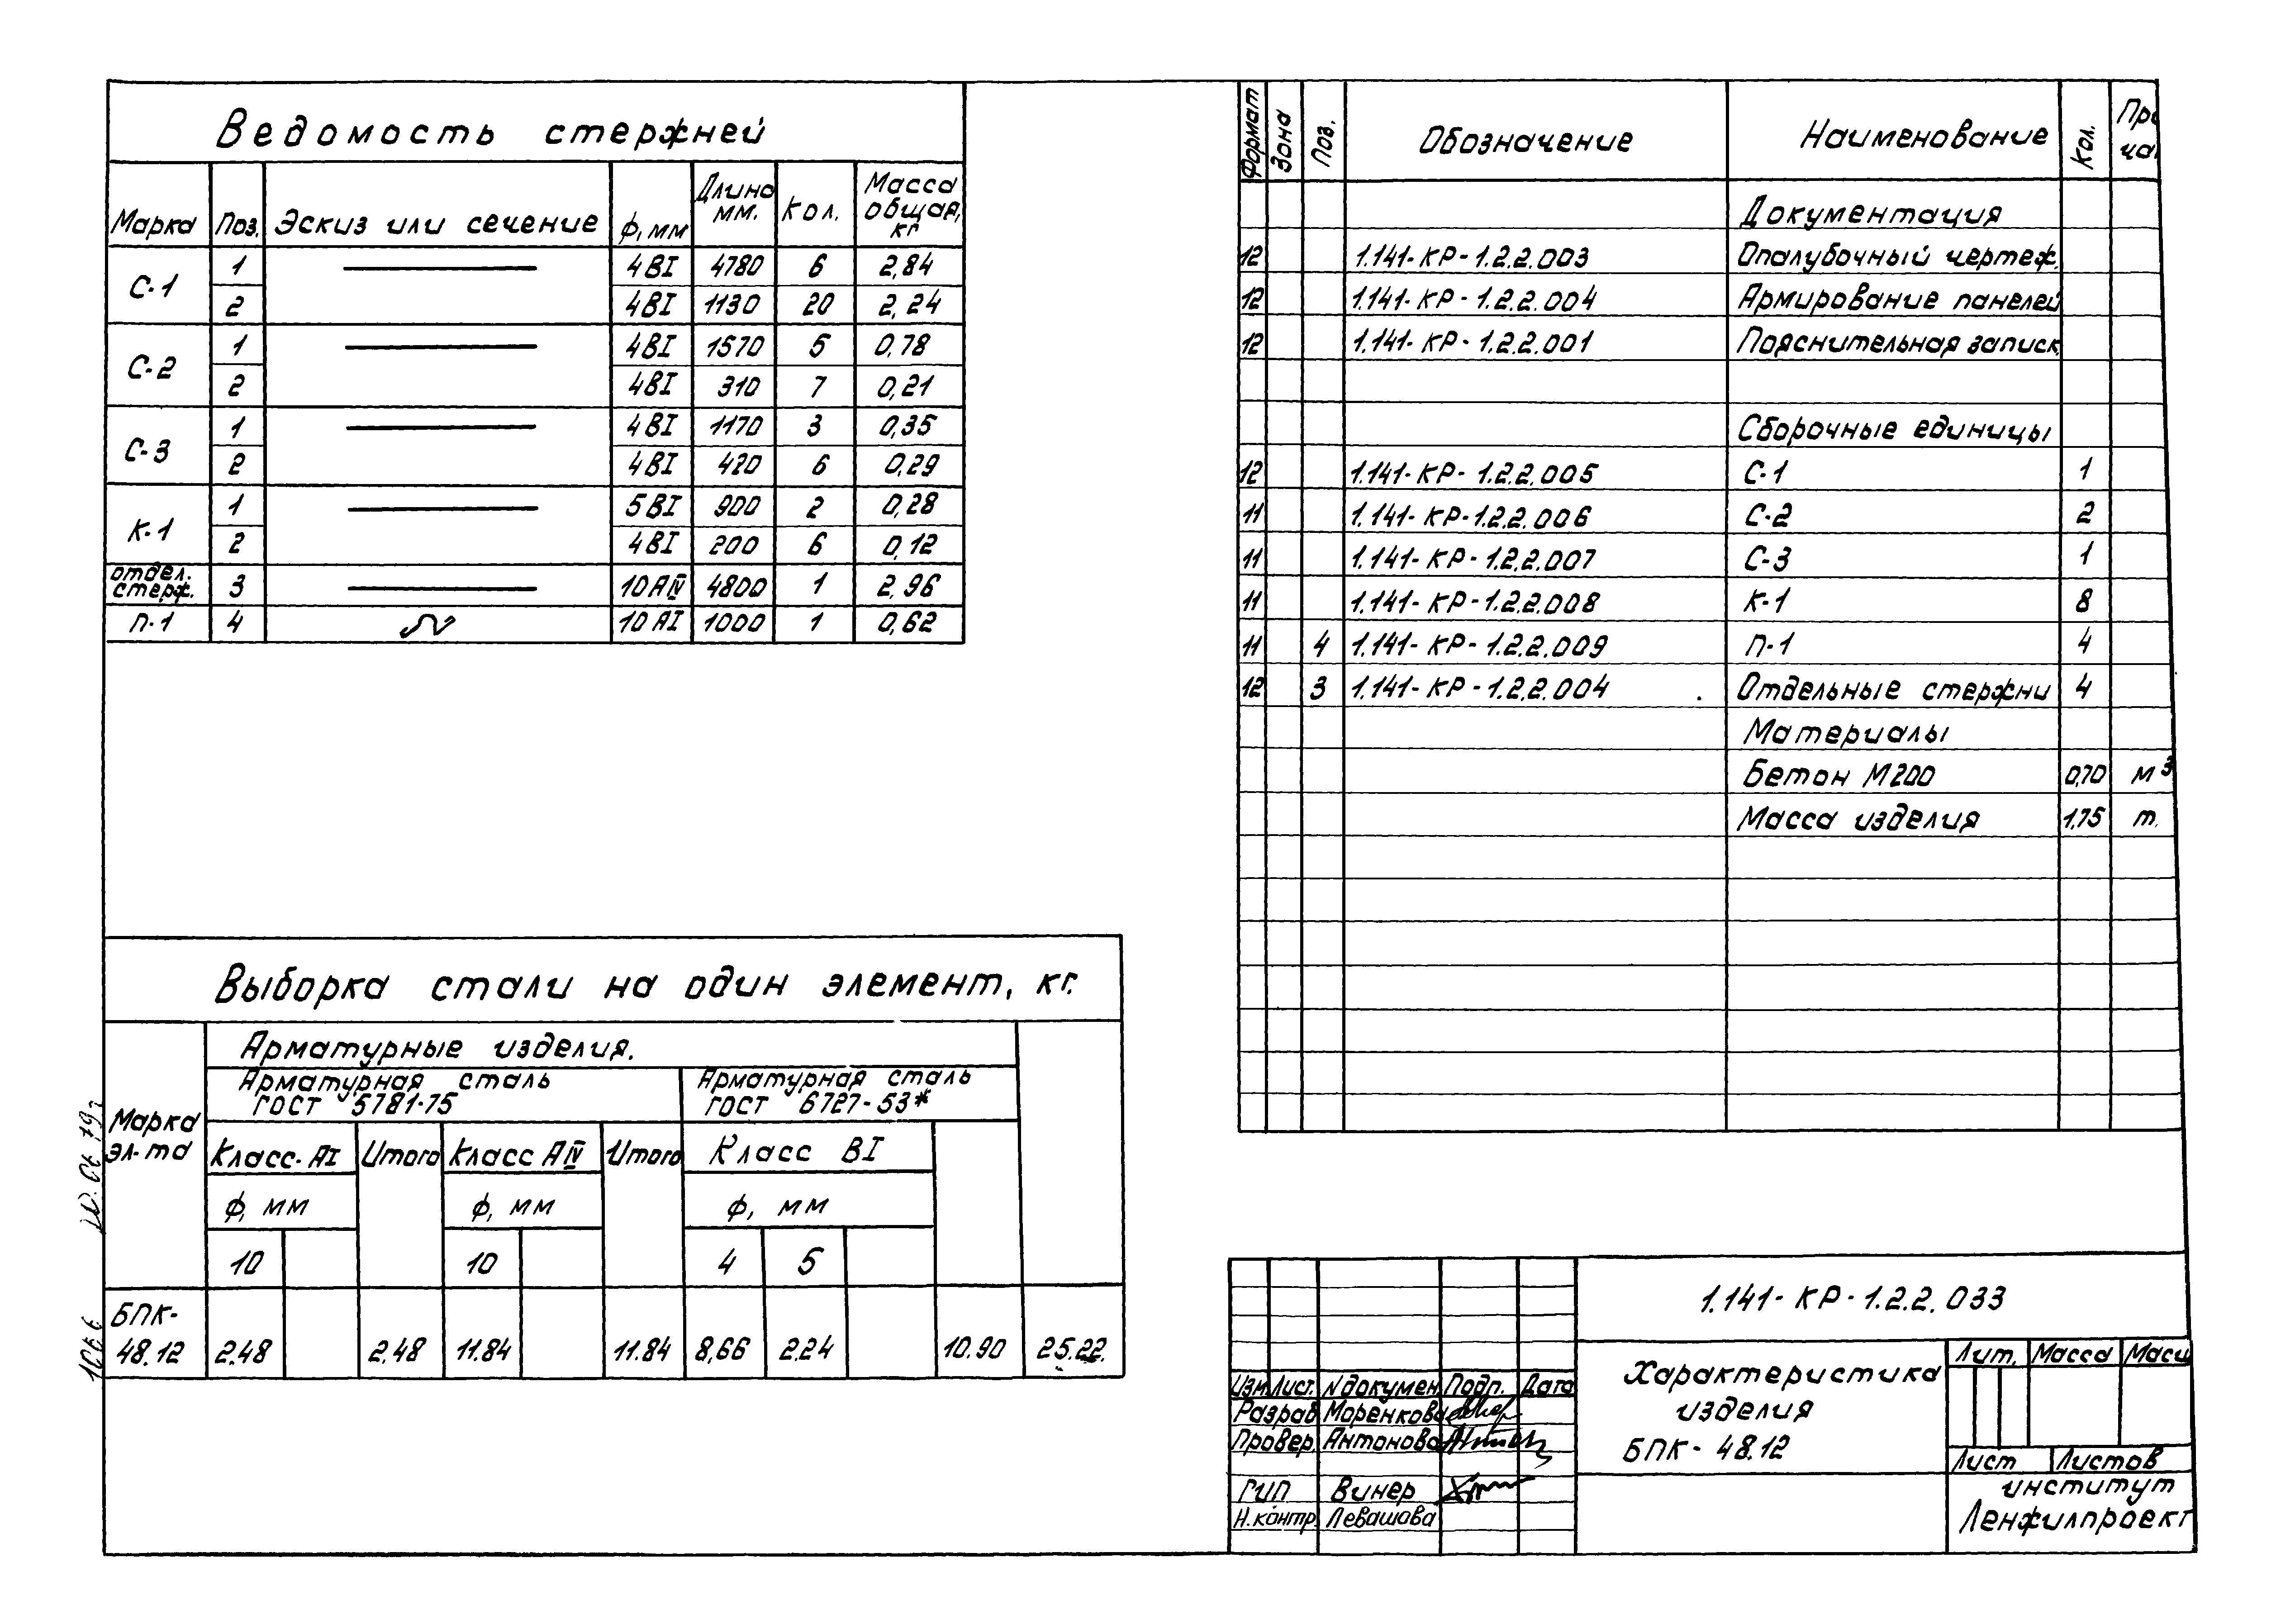 Ведомость стержней
Марка Поз. Эскиз или сечение ф, мм Длина мм. Кол. Масса общая, кг
С-1 1 4ВI 4780 6 2,84
2 4ВI 1130 20 2,24
С-2 1 4ВI 1570 5 0,78
2 4ВI 310 7 0,21
С-3 1 4ВI 1170 3 0,35
2 4ВI 420 6 0,29
К-1 1 5ВI 900 2 0,28
2 4ВI 200 6 0,12
отдел. стерж. 3 10АIV 4800 1 2,96
П-1 4 10АI 1000 1 0,62
Выборка стали на один элемент, кг.
Марка эл-та
Арматурные изделия.
Арматурная сталь ГОСТ 5781-75
Арматурная сталь ГОСТ 6727-53*
Класс-АI Итого Класс АIV Итого Класс ВI
ф, мм ф, мм ф, мм
10 10 4 5
БПК-48.12 2.48 2.48 11.84 11.84 8,66 2.24 10.90 25.22.
Формат Зона Поз. Обозначение Наименование Кол. При ча
Документация
12 1.141-КР-1.2.2.003 Опалубочный чертеж.
12 1.141-КР-1.2.2.004 Армирование панелей
12 1.141-КР-1.2.2.001 Пояснительная записк.
Сборочные единицы
12 1.141-КР-1.2.2.005 С-1 1
11 1.141-КР-1.2.2.006 С-2 2
11 1.141-КР-1.2.2.007 С-3 1
11 1.141-КР-1.2.2.008 К-1 8
11 4 1.141-КР-1.2.2.009 П-1 4
12 3 1.141-КР-1.2.2.004 Отдельные стержни 4
Материалы
Бетон М200 0,70 м³
Масса изделия 1,75 т.
1.141-КР-1.2.2.033
Характеристика
изделия
БПК-48.12
Лит. Масса Масш
Лист Листов
институт
Ленжилпроект
Изм. Лист. N докумен. Подп. Дата
Разраб Моренкова
Провер. Антонова
ГИП Винер
Н.контр. Левашова